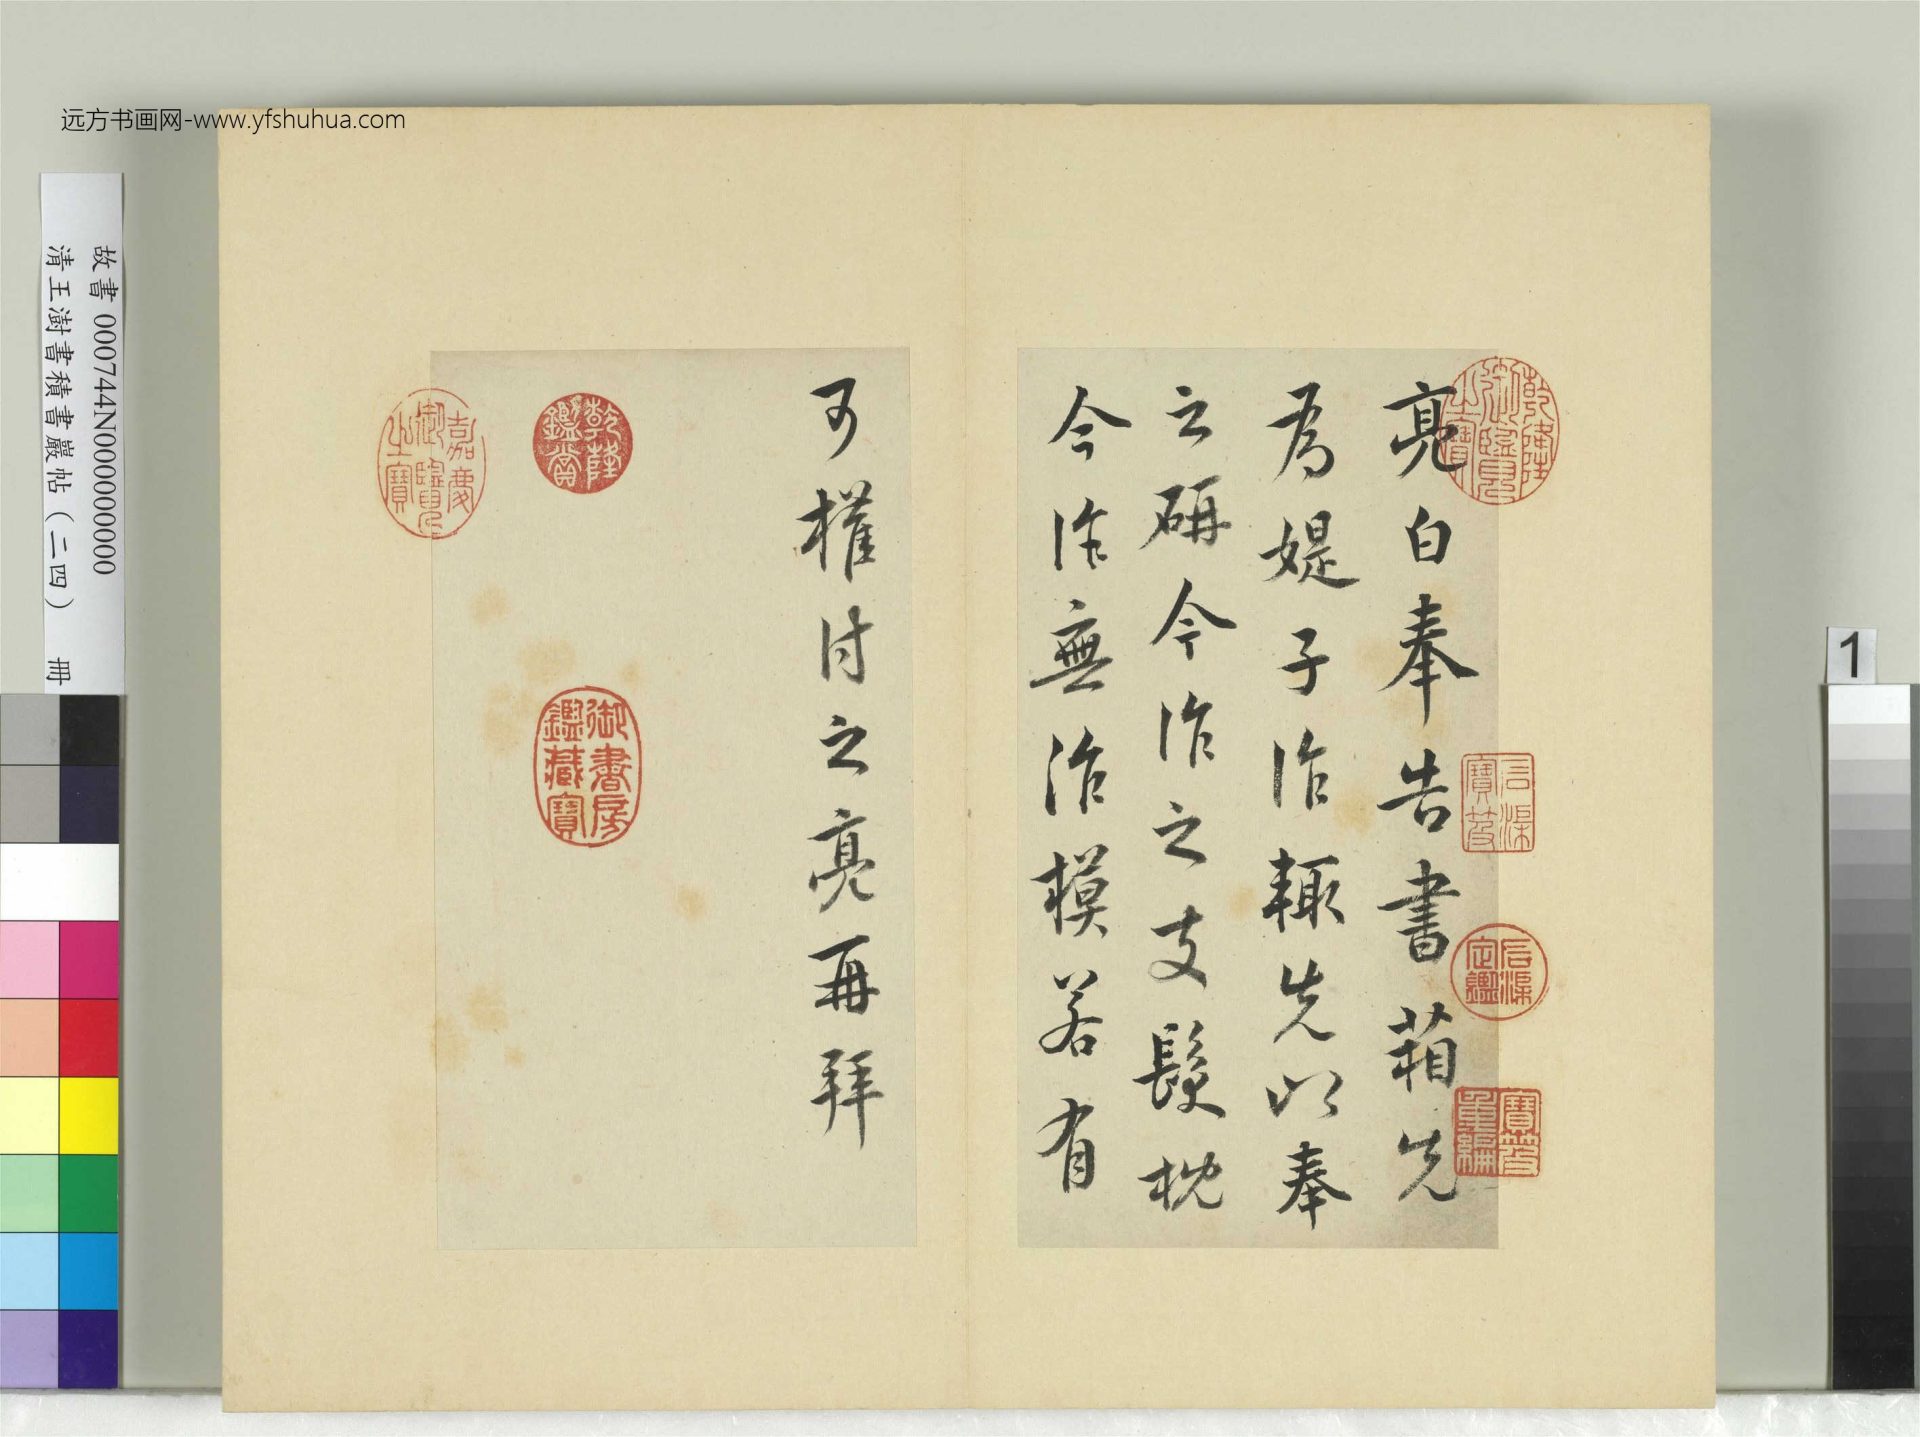 远方书画网-www.yfshuhua.com
故書 000744N000000000
清王澍書積書巖帖（二四） 冊
1
亮白奉告書箱先
為媞子作輙先以奉
之研今作之支髮枕
今作無治模若有
可權付之亮再拜
乾隆御覽之寶
石渠寶笈
石渠定鑑
寶笈重編
乾隆鑑賞
嘉慶御覽之寶
御書房鑑藏寶